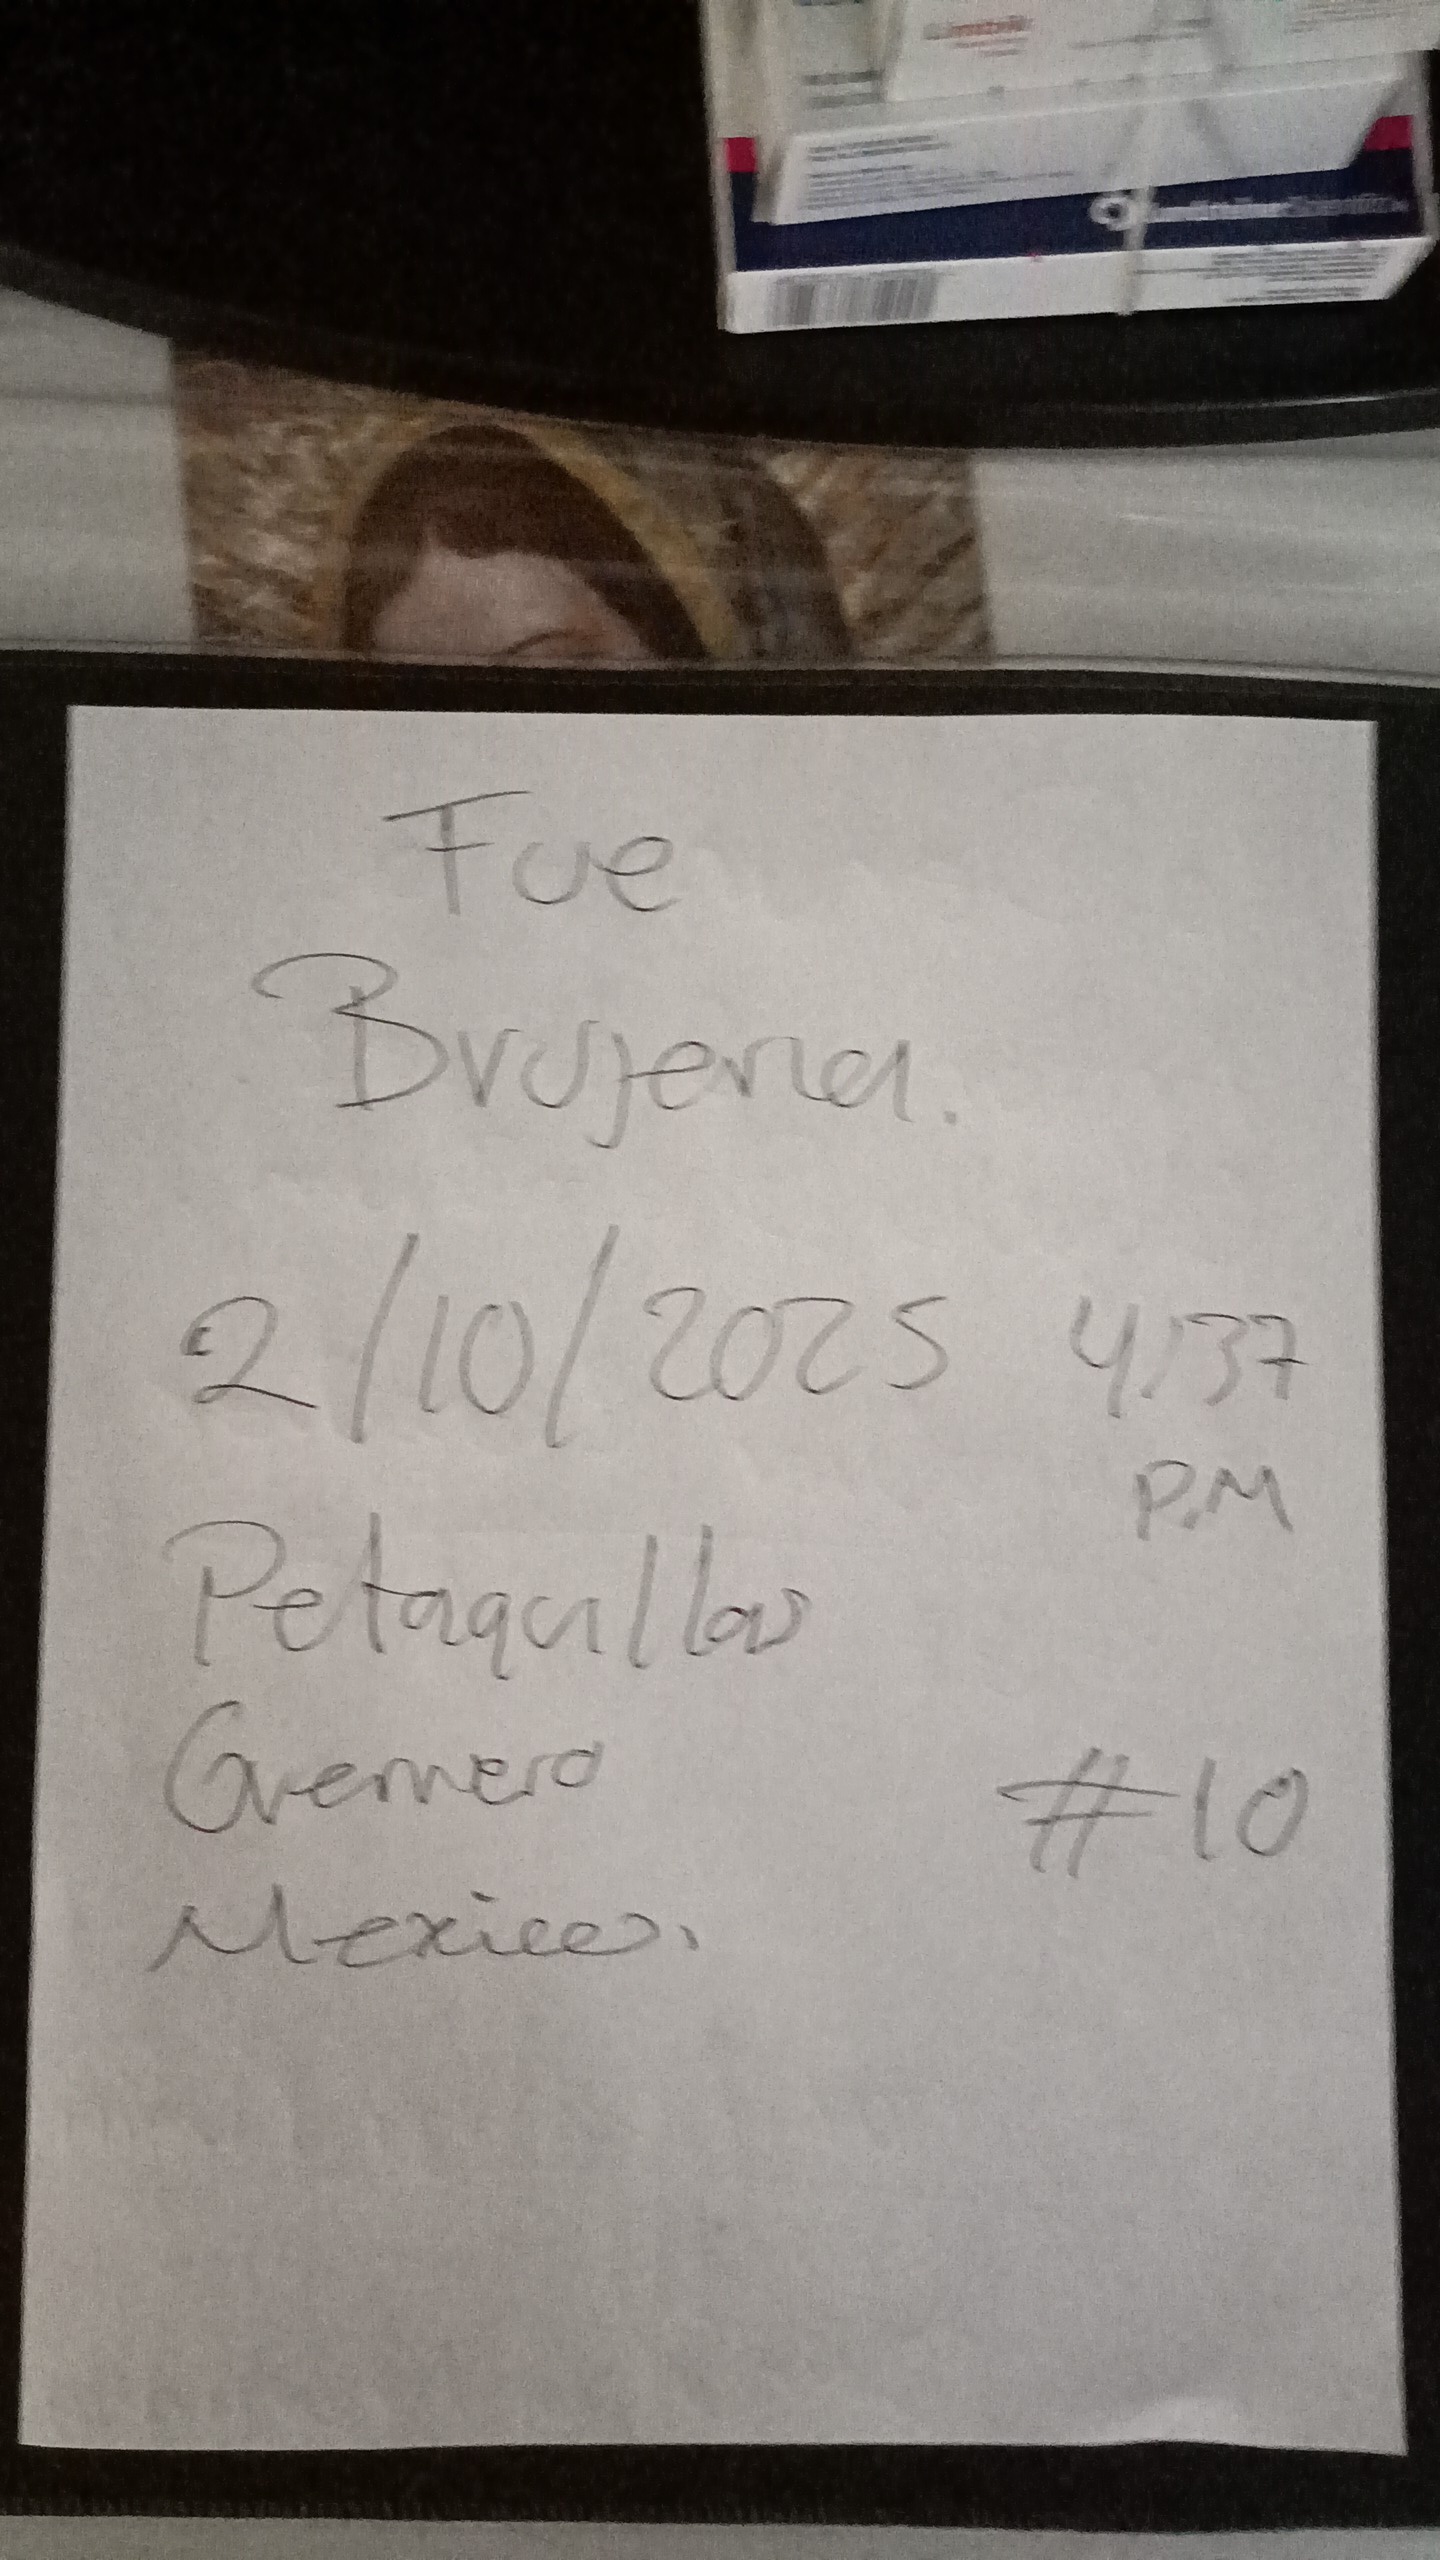 Fue
Brujeria.
2/10/2025 4:37
P.M
Petaquillas
Guerrero
#10
Mexico.